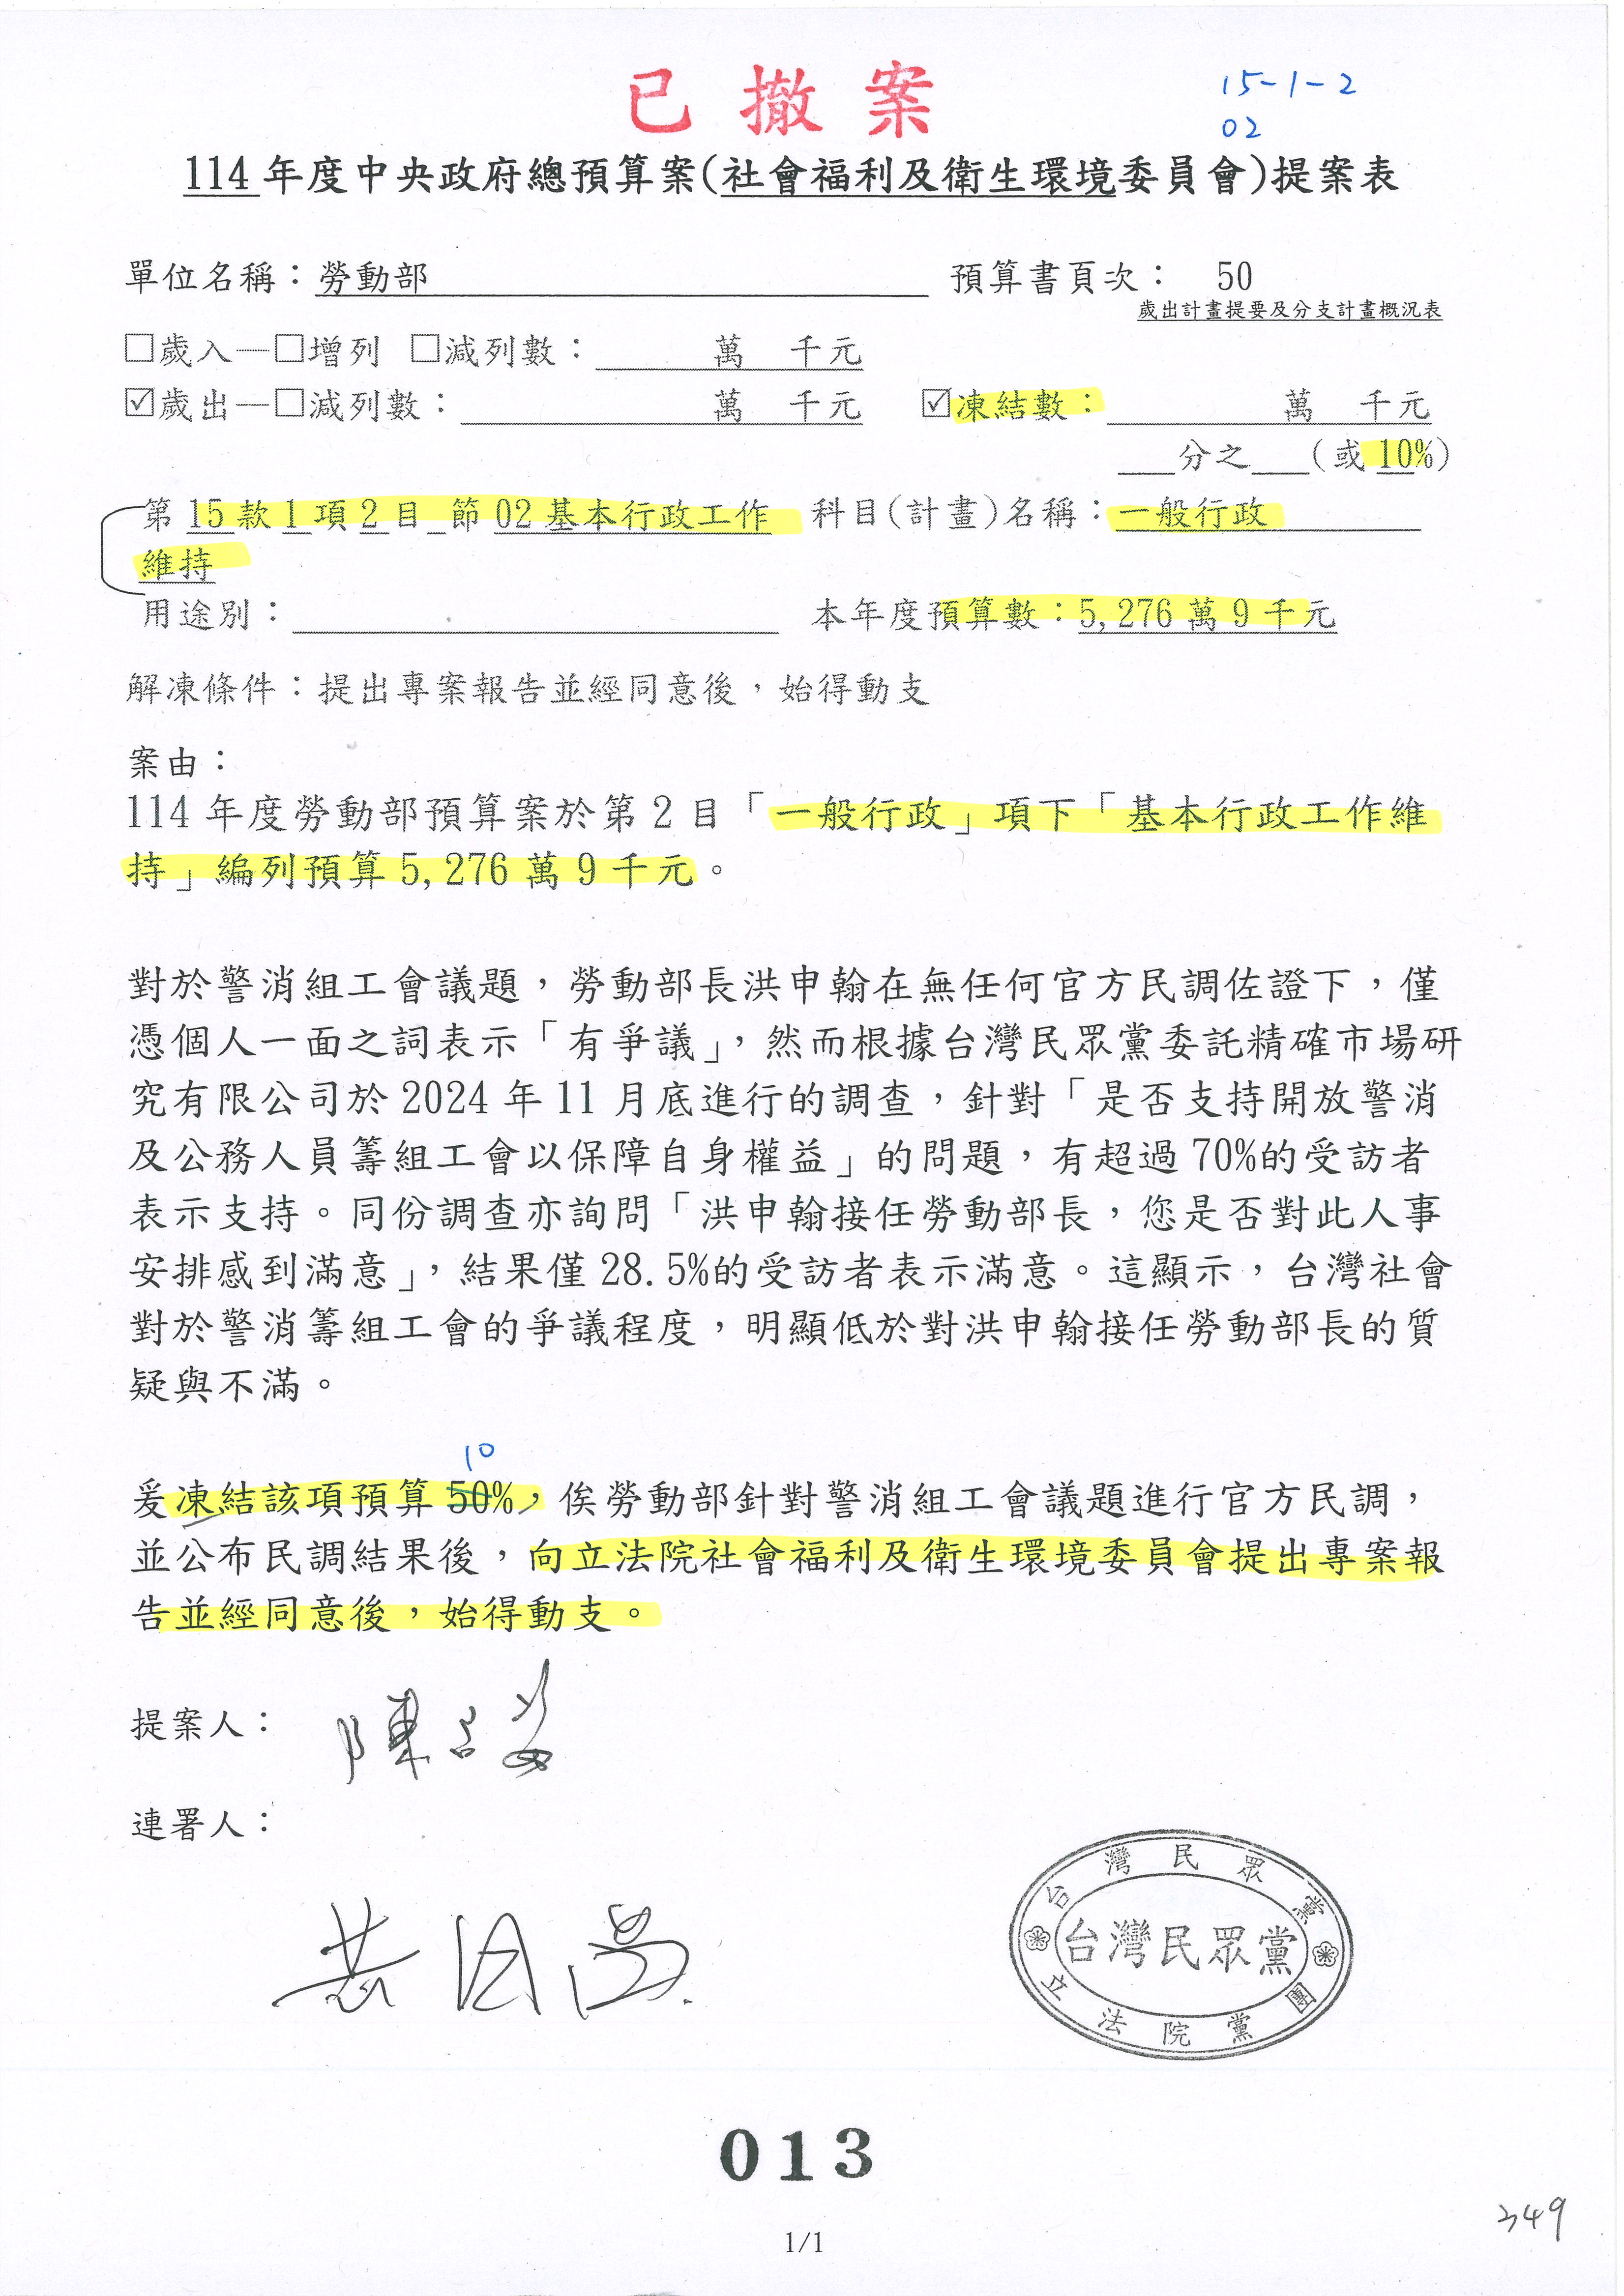 已撤案
15-1-2
02
114年度中央政府總預算案(社會福利及衛生環境委員會)提案表
單位名稱：勞動部 預算書頁次： 50
歲出計畫提要及分支計畫概況表
□歲入—□增列 □減列數： 萬 千元
☑歲出—□減列數： 萬 千元 ☑凍結數： 萬 千元
分之 (或10%)
第15款1項2目_節02基本行政工作 科目(計畫)名稱：一般行政
維持
用途別： 本年度預算數：5,276萬9千元
解凍條件：提出專案報告並經同意後，始得動支
案由：
114年度勞動部預算案於第2目「一般行政」項下「基本行政工作維
持」編列預算5,276萬9千元。
對於警消組工會議題，勞動部長洪申翰在無任何官方民調佐證下，僅
憑個人一面之詞表示「有爭議」，然而根據台灣民眾黨委託精確市場研
究有限公司於2024年11月底進行的調查，針對「是否支持開放警消
及公務人員籌組工會以保障自身權益」的問題，有超過70%的受訪者
表示支持。同份調查亦詢問「洪申翰接任勞動部長，您是否對此人事
安排感到滿意」，結果僅28.5%的受訪者表示滿意。這顯示，台灣社會
對於警消籌組工會的爭議程度，明顯低於對洪申翰接任勞動部長的質
疑與不滿。
10
爰凍結該項預算50%，俟勞動部針對警消組工會議題進行官方民調，
並公布民調結果後，向立法院社會福利及衛生環境委員會提出專案報
告並經同意後，始得動支。
提案人：
連署人：
台灣民眾黨
台灣民眾黨
立法院黨團
013
349
1/1